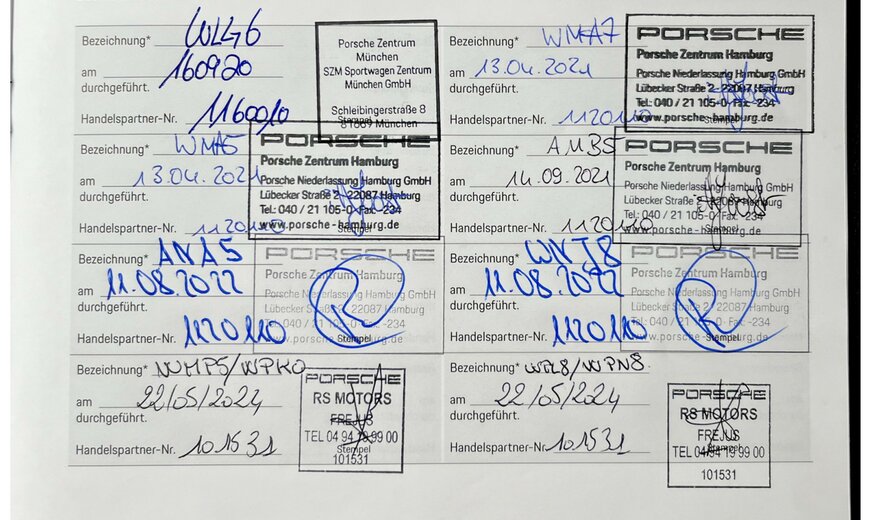 Bezeichnung* WLG6
am 160920
durchgeführt.
Handelspartner-Nr. 1160010
Porsche Zentrum
München
SZM Sportwagen Zentrum
München GmbH
Schleibingerstraße 8
81669 München
Stempel
Bezeichnung* WMA7
am 13.04.2021
durchgeführt.
Handelspartner-Nr. 1120110
PORSCHE
Porsche Zentrum Hamburg
Porsche Niederlassung Hamburg GmbH
Lübecker Straße 2 · 22087 Hamburg
Tel.: 040 / 21 105-0 · Fax: -234
www.porsche-hamburg.de
Stempel
Bezeichnung* WMA5
am 13.04.2021
durchgeführt.
Handelspartner-Nr. 1120110
PORSCHE
Porsche Zentrum Hamburg
Porsche Niederlassung Hamburg GmbH
Lübecker Straße 2 · 22087 Hamburg
Tel.: 040 / 21 105-0 · Fax: -234
www.porsche-hamburg.de
Stempel
Bezeichnung* AMB5
am 14.09.2021
durchgeführt.
Handelspartner-Nr. 1120110
PORSCHE
Porsche Zentrum Hamburg
Porsche Niederlassung Hamburg GmbH
Lübecker Straße 2 · 22087 Hamburg
Tel.: 040 / 21 105-0 · Fax: -234
www.porsche-hamburg.de
Stempel
Bezeichnung* ANA5
am 11.08.2022
durchgeführt.
Handelspartner-Nr. 1120110
PORSCHE
Porsche Zentrum Hamburg
Porsche Niederlassung Hamburg GmbH
Lübecker Straße 2 · 22087 Hamburg
Tel.: 040 / 21 105-0 · Fax: -234
www.porsche-hamburg.de
Stempel
Bezeichnung* WNJ8
am 11.08.2022
durchgeführt.
Handelspartner-Nr. 1120110
PORSCHE
Porsche Zentrum Hamburg
Porsche Niederlassung Hamburg GmbH
Lübecker Straße 2 · 22087 Hamburg
Tel.: 040 / 21 105-0 · Fax: -234
www.porsche-hamburg.de
Stempel
Bezeichnung* WMP5/WPK0
am 22/05/2024
durchgeführt.
Handelspartner-Nr. 101531
PORSCHE
RS MOTORS
FREJUS
TEL 04 94 19 99 00
Stempel
101531
Bezeichnung* WPN8
am 22/05/2024
durchgeführt.
Handelspartner-Nr. 101531
PORSCHE
RS MOTORS
FREJUS
TEL 04 94 19 99 00
Stempel
101531